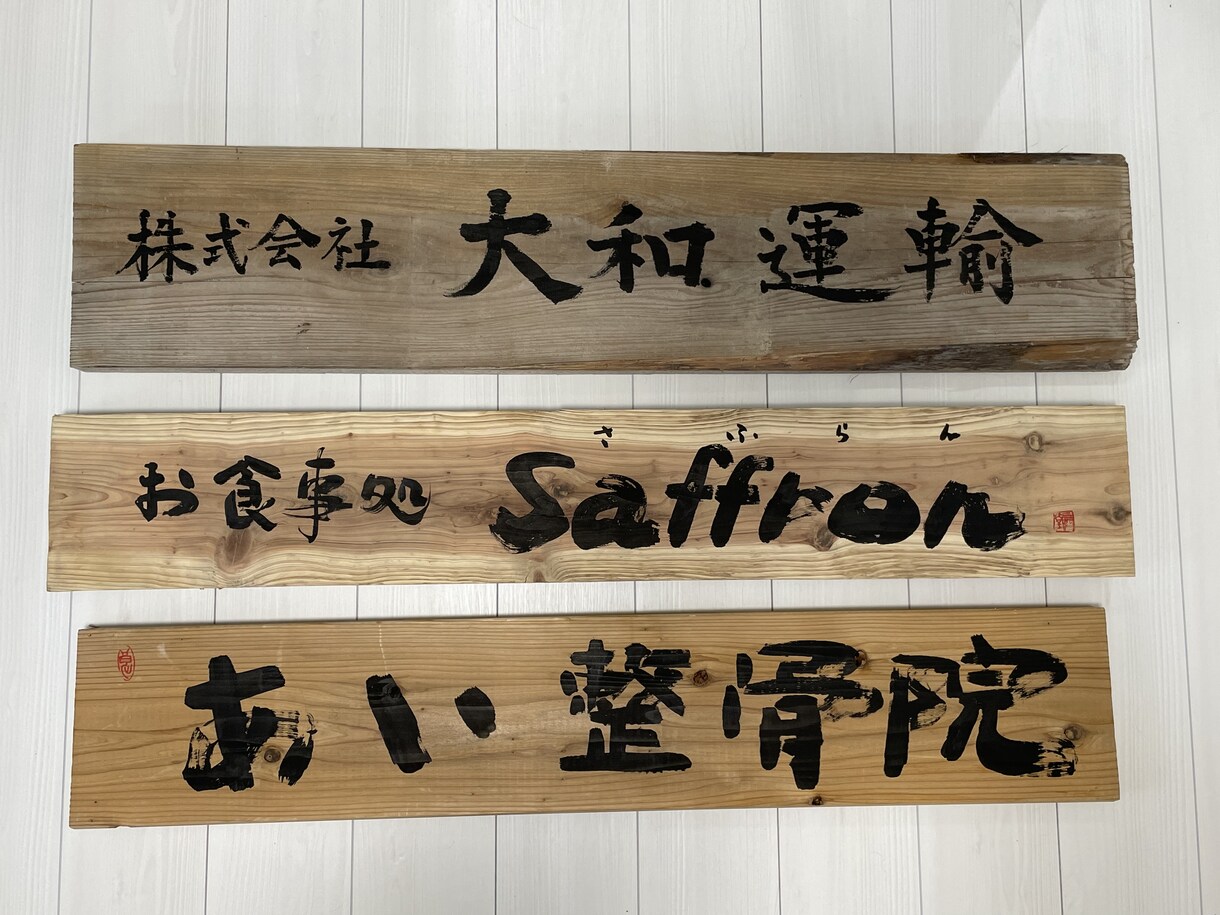 株式会社 大和運輸
さふらん
お食事処 Saffron
あい整骨院